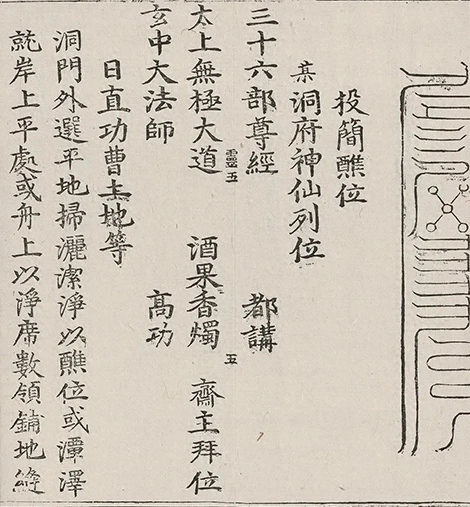 投簡醮位
某洞府神仙列位
三十六部尊經 都講
太上無極大道 靈五 酒果香燭 五 齋主拜位
玄中大法師 高功
日直功曹土地等
洞門外選平地掃灑潔淨以醮位或潭澤
就岸上平處或舟上以淨席數領鋪地縫